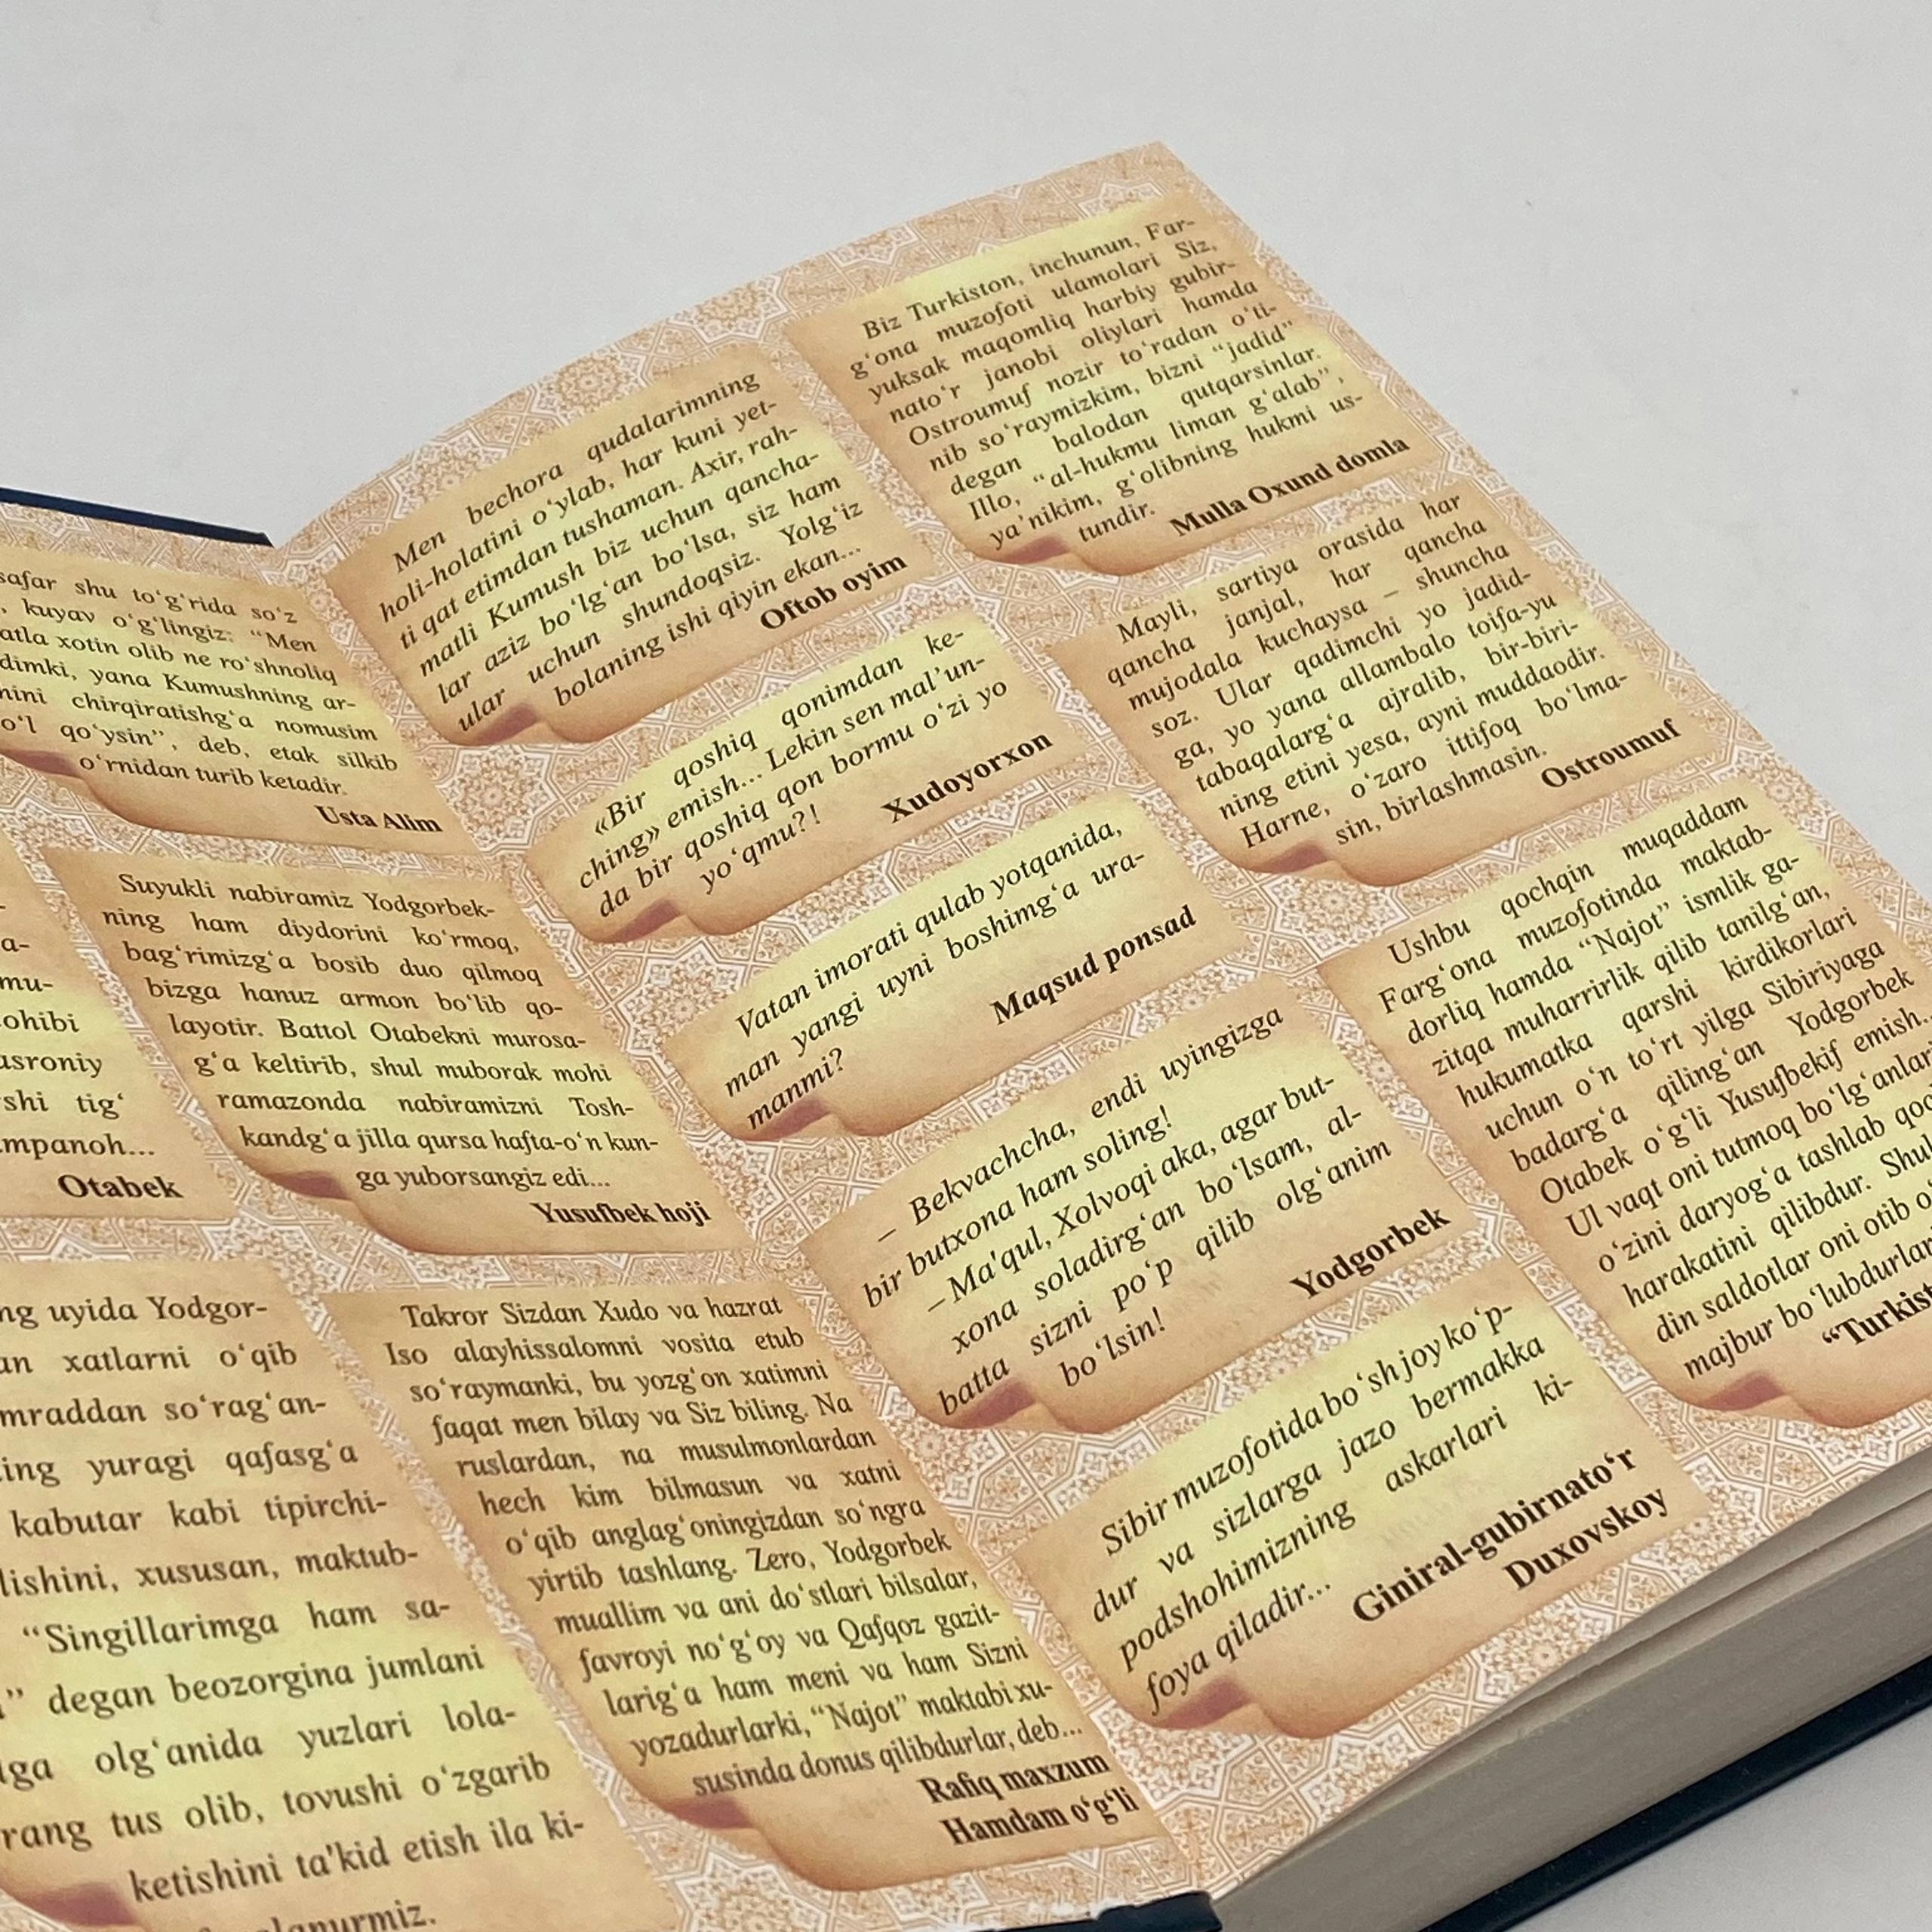 safar shu to‘g‘rida so‘z
kuyav o‘g‘lingiz: “Men
xotin olib ne ro‘shnoliq
yana Kumushning ar-
chirqiratishg‘a nomusim
qo‘ysin”, deb, etak silkib
o‘rnidan turib ketadir.
Usta Alim
Otabek
Suyukli nabiramiz Yodgorbek-
ning ham diydorini ko‘rmoq,
bag‘rimizg‘a bosib duo qilmoq
bizga hanuz armon bo‘lib qo-
layotir. Battol Otabekni murosa-
g‘a keltirib, shul muborak mohi
ramazonda nabiramizni Tosh-
kandg‘a jilla qursa hafta-o‘n kun-
ga yuborsangiz edi...
Yusufbek hoji
uyida Yodgor-
xatlarni o‘qib
so‘rag‘an-
yuragi qafasg‘a
kabutar kabi tipirchi-
xususan, maktub-
“Singillarimga ham sa-
degan beozorgina jumlani
olg‘anida yuzlari lola-
rang tus olib, tovushi o‘zgarib
ketishini ta’kid etish ila ki-
Takror Sizdan Xudo va hazrat
Iso alayhissalomni vosita etub
so‘raymanki, bu yozg‘on xatimni
faqat men bilay va Siz biling. Na
ruslardan, na musulmonlardan
hech kim bilmasun va xatni
o‘qib anglag‘oningizdan so‘ngra
yirtib tashlang. Zero, Yodgorbek
muallim va ani do‘stlari bilsalar,
favroyi no‘g‘oy va Qafqoz gazit-
larig‘a ham meni va ham Sizni
yozadurlarki, “Najot” maktabi xu-
susinda donus qilibdurlar, deb...
Rafiq maxzum
Hamdam o‘g‘li
Men bechora qudalarimning
holi-holatini o‘ylab, har kuni yet-
ti qat etimdan tushaman. Axir, rah-
matli Kumush biz uchun qancha-
lar aziz bo‘lg‘an bo‘lsa, siz ham
ular uchun shundoqsiz. Yolg‘iz
bolaning ishi qiyin ekan...
Oftob oyim
«Bir qoshiq qonimdan ke-
ching» emish... Lekin sen mal’un-
da bir qoshiq qon bormu o‘zi yo
yo‘qmu?!
Xudoyorxon
Vatan imorati qulab yotqanida,
man yangi uyni boshimg‘a ura-
manmi?
Maqsud ponsad
– Bekvachcha, endi uyingizga
bir butxona ham soling!
– Ma'qul, Xolvoqi aka, agar but-
xona soladirg‘an bo‘lsam, al-
batta sizni po‘p qilib olg‘anim
bo‘lsin!
Yodgorbek
Sibir muzofotida bo‘sh joy ko‘p-
dur va sizlarga jazo bermakka
podshohimizning askarlari ki-
foya qiladir...
Giniral-gubirnato‘r
Duxovskoy
Biz Turkiston, inchunun, Far-
g‘ona muzofoti ulamolari Siz,
yuksak maqomliq harbiy gubir-
nato‘r janobi oliylari hamda
Ostroumuf nozir to‘radan o‘ti-
nib so‘raymizkim, bizni “jadid”
degan balodan qutqarsinlar.
Illo, “al-hukmu liman g‘alab”,
ya’nikim, g‘olibning hukmi us-
tundir.
Mulla Oxund domla
Mayli, sartiya orasida har
qancha janjal, har qancha
mujodala kuchaysa – shuncha
soz. Ular qadimchi yo jadid-
ga, yo yana allambalo toifa-yu
tabaqalarg‘a ajralib, bir-biri-
ning etini yesa, ayni muddaodir.
Harne, o‘zaro ittifoq bo‘lma-
sin, birlashmasin.
Ostroumuf
Ushbu qochqin muqaddam
Farg‘ona muzofotinda maktab-
dorliq hamda “Najot” ismlik ga-
zitqa muharrirlik qilib tanilg‘an,
hukumatka qarshi kirdikorlari
uchun o‘n to‘rt yilga Sibiriyaga
badarg‘a qiling‘an Yodgorbek
Otabek o‘g‘li Yusufbekif emish...
Ul vaqt oni tutmoq bo‘lg‘anlari
o‘zini daryog‘a tashlab
harakatini qilibdur.
din saldotlar oni otib
majbur bo‘lubdurlar